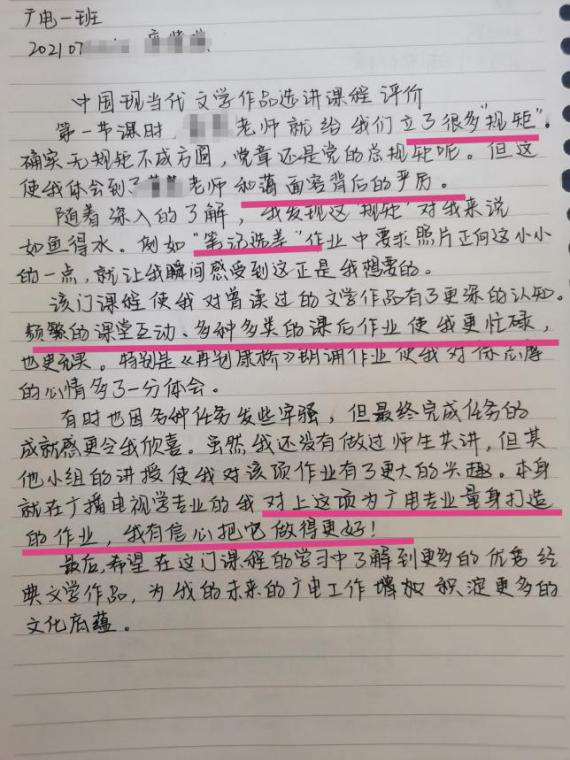 广电一班
202107
中国现当代文学作品选讲课程评价
第一节课时，老师就给我们立了很多“规矩”。
确实无规矩不成方圆，党章还是党的总规矩呢。但这
使我体会到了老师和蔼面容背后的严厉。
随着深入的了解，我发现这“规矩”对我来说
如鱼得水。例如“笔记选差”作业中要求照片正向这小小
的一点，就让我瞬间感受到这正是我想要的。
该门课程使我对曾读过的文学作品有了更深的认知。
频繁的课堂互动、多种多类的课后作业使我更忙碌，
也更充实。特别是《再别康桥》朗诵作业使我对徐志摩
的心情多了一分体会。
有时也因各种任务发些牢骚，但最终完成任务的
成就感更令我欣喜。虽然我还没有做过师生共讲，但其
他小组的讲授使我对该项作业有了更大的兴趣。本身
就在广播电视学专业的我对上这项为广电专业量身打造
的作业，我有信心把它做得更好！
最后，希望在这门课程的学习中了解到更多的优秀经
典文学作品，为我的未来的广电工作增加积淀更多的
文化底蕴。